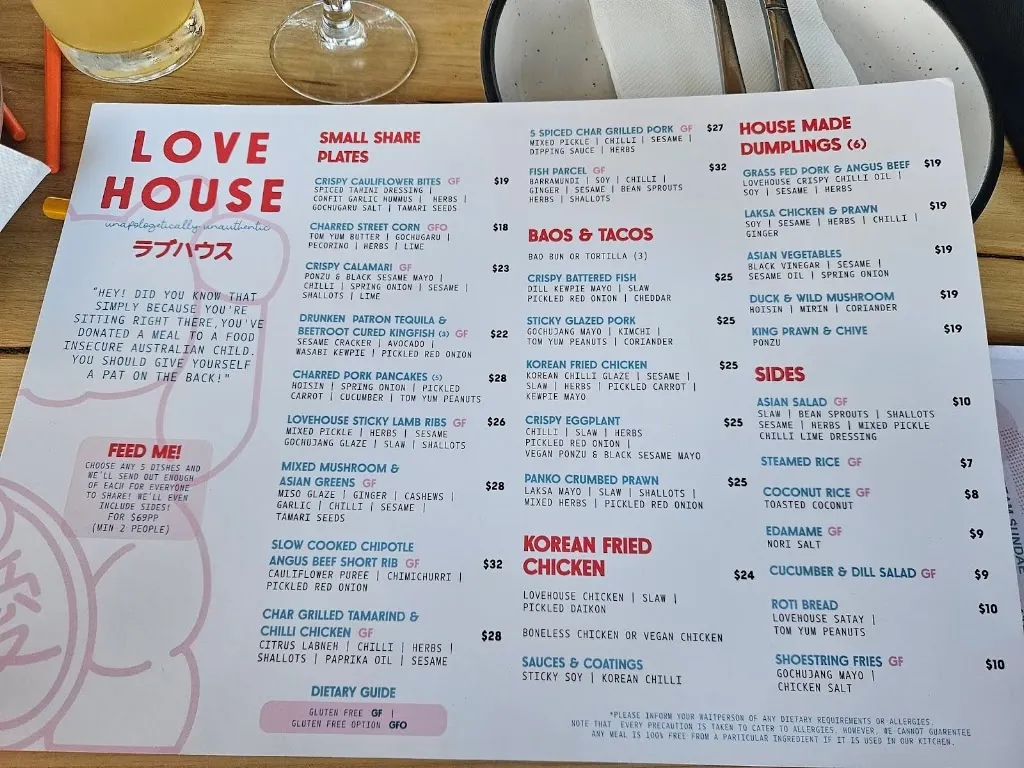 LOVE
HOUSE
unapologetically unauthentic
ラブハウス
"HEY! DID YOU KNOW THAT
SIMPLY BECAUSE YOU'RE
SITTING RIGHT THERE,YOU'VE
DONATED A MEAL TO A FOOD
INSECURE AUSTRALIAN CHILD.
YOU SHOULD GIVE YOURSELF
A PAT ON THE BACK!"
FEED ME!
CHOOSE ANY 5 DISHES AND
WE'LL SEND OUT ENOUGH
OF EACH FOR EVERYONE
TO SHARE! WE'LL EVEN
INCLUDE SIDES!
FOR $69PP
(MIN 2 PEOPLE)
SMALL SHARE
PLATES
CRISPY CAULIFLOWER BITES GF $19
SPICED TAHINI DRESSING |
CONFIT GARLIC HUMMUS | HERBS |
GOCHUGARU SALT | TAMARI SEEDS
CHARRED STREET CORN GFO $18
TOM YUM BUTTER | GOCHUGARU |
PECORINO | HERBS | LIME
CRISPY CALAMARI GF $23
PONZU & BLACK SESAME MAYO |
CHILLI | SPRING ONION | SESAME |
SHALLOTS | LIME
DRUNKEN PATRON TEQUILA &
BEETROOT CURED KINGFISH (3) GF $22
SESAME CRACKER | AVOCADO |
WASABI KEWPIE | PICKLED RED ONION
CHARRED PORK PANCAKES (5) $28
HOISIN | SPRING ONION | PICKLED
CARROT | CUCUMBER | TOM YUM PEANUTS
LOVEHOUSE STICKY LAMB RIBS GF $26
MIXED PICKLE | HERBS | SESAME
GOCHUJANG GLAZE | SLAW | SHALLOTS
MIXED MUSHROOM &
ASIAN GREENS GF $28
MISO GLAZE | GINGER | CASHEWS |
GARLIC | CHILLI | SESAME |
TAMARI SEEDS
SLOW COOKED CHIPOTLE
ANGUS BEEF SHORT RIB GF $32
CAULIFLOWER PUREE | CHIMICHURRI |
PICKLED RED ONION
CHAR GRILLED TAMARIND &
CHILLI CHICKEN GF $28
CITRUS LABNEH | CHILLI | HERBS |
SHALLOTS | PAPRIKA OIL | SESAME
DIETARY GUIDE
GLUTEN FREE GF |
GLUTEN FREE OPTION GFO
5 SPICED CHAR GRILLED PORK GF $27
MIXED PICKLE | CHILLI | SESAME |
DIPPING SAUCE | HERBS
FISH PARCEL GF $32
BARRAMUNDI | SOY | CHILLI |
GINGER | SESAME | BEAN SPROUTS
HERBS | SHALLOTS
BAOS & TACOS
BAO BUN OR TORTILLA (3)
CRISPY BATTERED FISH $25
DILL KEWPIE MAYO | SLAW
PICKLED RED ONION | CHEDDAR
STICKY GLAZED PORK $25
GOCHUJANG MAYO | KIMCHI |
TOM YUM PEANUTS | CORIANDER
KOREAN FRIED CHICKEN $25
KOREAN CHILLI GLAZE | SESAME |
SLAW | HERBS | PICKLED CARROT |
KEWPIE MAYO
CRISPY EGGPLANT $25
CHILLI | SLAW | HERBS
PICKLED RED ONION |
VEGAN PONZU & BLACK SESAME MAYO
PANKO CRUMBED PRAWN $25
LAKSA MAYO | SLAW | SHALLOTS |
MIXED HERBS | PICKLED RED ONION
KOREAN FRIED
CHICKEN $24
LOVEHOUSE CHICKEN | SLAW |
PICKLED DAIKON
BONELESS CHICKEN OR VEGAN CHICKEN
SAUCES & COATINGS
STICKY SOY | KOREAN CHILLI
HOUSE MADE
DUMPLINGS (6)
GRASS FED PORK & ANGUS BEEF $19
LOVEHOUSE CRISPY CHILLI OIL |
SOY | SESAME | HERBS
LAKSA CHICKEN & PRAWN $19
SOY | SESAME | HERBS | CHILLI |
GINGER
ASIAN VEGETABLES $19
BLACK VINEGAR | SESAME |
SESAME OIL | SPRING ONION
DUCK & WILD MUSHROOM $19
HOISIN | MIRIN | CORIANDER
KING PRAWN & CHIVE $19
PONZU
SIDES
ASIAN SALAD GF $10
SLAW | BEAN SPROUTS | SHALLOTS
SESAME | HERBS | MIXED PICKLE
CHILLI LIME DRESSING
STEAMED RICE GF $7
COCONUT RICE GF $8
TOASTED COCONUT
EDAMAME GF $9
NORI SALT
CUCUMBER & DILL SALAD GF $9
ROTI BREAD $10
LOVEHOUSE SATAY |
TOM YUM PEANUTS
SHOESTRING FRIES GF $10
GOCHUJANG MAYO |
CHICKEN SALT
*PLEASE INFORM YOUR WAITPERSON OF ANY DIETARY REQUIREMENTS OR ALLERGIES.
NOTE THAT EVERY PRECAUTION IS TAKEN TO CATER TO ALLERGIES. HOWEVER, WE CANNOT GUARANTEE
ANY MEAL IS 100% FREE FROM A PARTICULAR INGREDIENT IF IT IS USED IN OUR KITCHEN.
SUNDAE